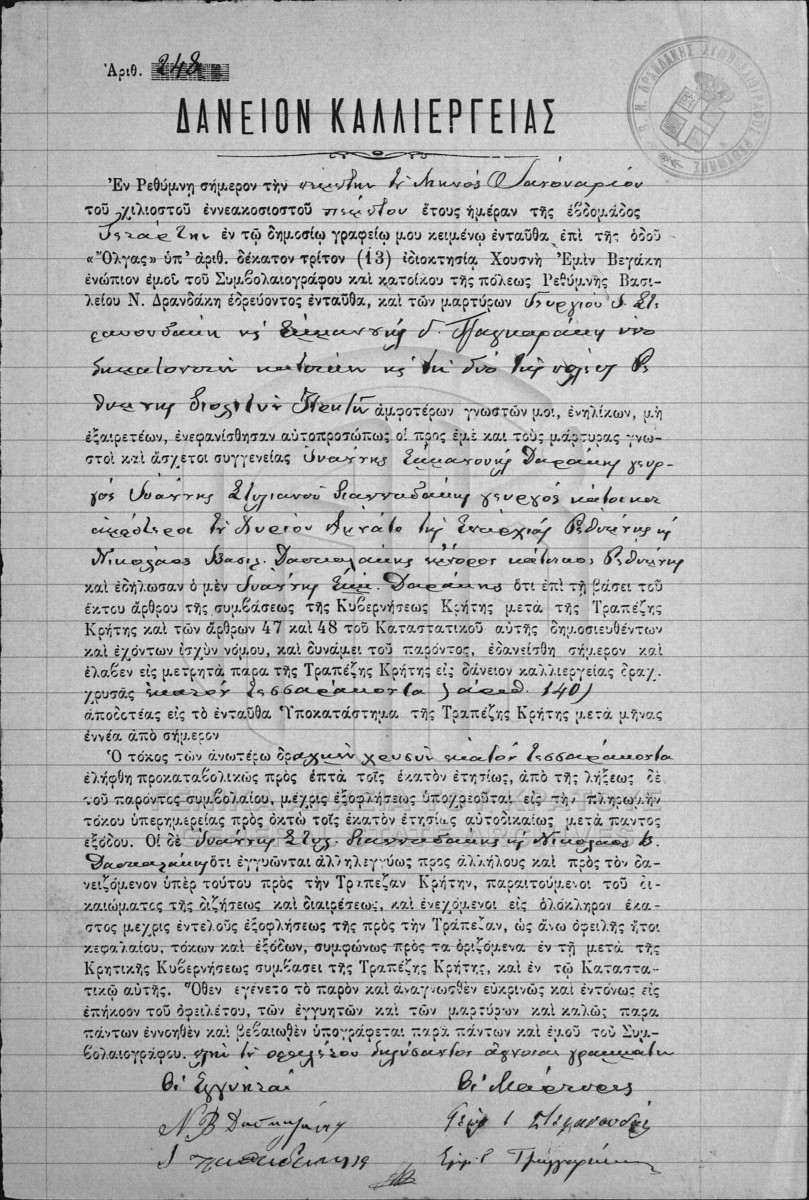 Ἀριθ. 248
ΔΑΝΕΙΟΝ ΚΑΛΛΙΕΡΓΕΙΑΣ
Β. Ν. ΔΡΑΝΔΑΚΗΣ ΣΥΜΒΟΛΑΙΟΓΡΑΦΟΣ ΡΕΘΥΜΝΗΣ
Ἐν Ρεθύμνῃ σήμερον τὴν πέμπτην τοῦ μηνὸς Ἰανουαρίου
τοῦ χιλιοστοῦ ἐννεακοσιοστοῦ πέμπτου ἔτους ἡμέραν τῆς ἑβδομάδος
Τετάρτην ἐν τῷ δημοσίῳ γραφείῳ μου κειμένῳ ἐνταῦθα ἐπὶ τῆς ὁδοῦ
«Ὄλγας» ὑπ' ἀριθ. δέκατον τρίτον (13) ἰδιοκτησία Χουσνῆ Ἐμὶν Βεγάκη
ἐνώπιον ἐμοῦ τοῦ Συμβολαιογράφου καὶ κατοίκου τῆς πόλεως Ρεθύμνης Βασι-
λείου Ν. Δρανδάκη ἑδρεύοντος ἐνταῦθα, καὶ τῶν μαρτύρων Γεωργίου
κατοίκων
θύμνης πολιτῶν Κρητῶν ἀμφοτέρων γνωστῶν μοι, ἐνηλίκων, μὴ
ἐξαιρετέων, ἐνεφανίσθησαν αὐτοπροσώπως οἱ πρὸς ἐμὲ καὶ τοὺς μάρτυρας γνω-
στοὶ καὶ ἄσχετοι συγγενείας Ἰωάννης Ἐμμανουὴλ Δαράκης γεωρ-
γὸς Ἰωάννης Στυλιανοῦ Γιανναδάκης γεωργὸς κάτοικοι
ἀμφότεροι τοῦ χωρίου τῆς Ἐπαρχίας Ρεθύμνης κ
Νικόλαος Βασιλ. Δασκαλάκης ἔμπορος κάτοικος Ρεθύμνης
καὶ ἐδήλωσαν ὁ μὲν Ἰωάννης Ἐμμ. Δαράκης ὅτι ἐπὶ τῇ βάσει τοῦ
ἕκτου ἄρθρου τῆς συμβάσεως τῆς Κυβερνήσεως Κρήτης μετὰ τῆς Τραπέζης
Κρήτης καὶ τῶν ἄρθρων 47 καὶ 48 τοῦ Καταστατικοῦ αὐτῆς δημοσιευθέντων
καὶ ἐχόντων ἰσχὺν νόμου, καὶ δυνάμει τοῦ παρόντος, ἐδανείσθη σήμερον καὶ
ἔλαβεν εἰς μετρητὰ παρὰ τῆς Τραπέζης Κρήτης εἰς δάνειον καλλιεργείας δραχ.
χρυσᾶς ἑκατὸν τεσσαράκοντα (ἀριθ. 140)
ἀποδοτέας εἰς τὸ ἐνταῦθα Ὑποκατάστημα τῆς Τραπέζης Κρήτης μετὰ μῆνας
ἐννέα ἀπὸ σήμερον
Ὁ τόκος τῶν ἀνωτέρω δραχμῶν χρυσῶν ἑκατὸν τεσσαράκοντα
ἐλήφθη προκαταβολικῶς πρὸς ἑπτὰ τοῖς ἑκατὸν ἐτησίως, ἀπὸ τῆς λήξεως δὲ
τοῦ παρόντος συμβολαίου, μέχρις ἐξοφλήσεως ὑποχρεοῦται εἰς τὴν πληρωμὴν
τόκου ὑπερημερίας πρὸς ὀκτὼ τοῖς ἑκατὸν ἐτησίως αὐτοδικαίως μετὰ παντὸς
ἐξόδου. Οἱ δὲ Ἰωάννης Στυλ. Γιανναδάκης κ Νικόλαος Β.
Δασκαλάκης ὅτι ἐγγυῶνται ἀλληλεγγύως πρὸς ἀλλήλους καὶ πρὸς τὸν δα-
νειζόμενον ὑπὲρ τούτου πρὸς τὴν Τράπεζαν Κρήτην, παραιτούμενοι τοῦ δι-
καιώματος τῆς διζήσεως καὶ διαιρέσεως, καὶ ἐνεχόμενοι εἰς ὁλόκληρον ἕκα-
στος μέχρις ἐντελοῦς ἐξοφλήσεως τῆς πρὸς τὴν Τράπεζαν, ὡς ἄνω ὀφειλῆς ἤτοι
κεφαλαίου, τόκων καὶ ἐξόδων, συμφώνως πρὸς τὰ ὁριζόμενα ἐν τῇ μετὰ τῆς
Κρητικῆς Κυβερνήσεως συμβάσει τῆς Τραπέζης Κρήτης, καὶ ἐν τῷ Καταστα-
τικῷ αὐτῆς. Ὅθεν ἐγένετο τὸ παρὸν καὶ ἀναγνωσθὲν εὐκρινῶς καὶ ἐντόνως εἰς
ἐπήκοον τοῦ ὀφειλέτου, τῶν ἐγγυητῶν καὶ τῶν μαρτύρων καὶ καλῶς παρὰ
πάντων ἐννοηθὲν καὶ βεβαιωθὲν ὑπογράφεται παρὰ πάντων καὶ ἐμοῦ τοῦ Συμ-
βολαιογράφου. πλὴν τοῦ ὀφειλέτου δηλώσαντος ἄγνοιαν γραμμάτων
Οἱ Ἐγγυηταὶ Οἱ Μάρτυρες
Ν Β Δασκαλάκης
ΓΕΝΙΚΑ ΑΡΧΕΙΑ ΤΟΥ ΚΡΑΤΟΥΣ
GENERAL STATE ARCHIVES